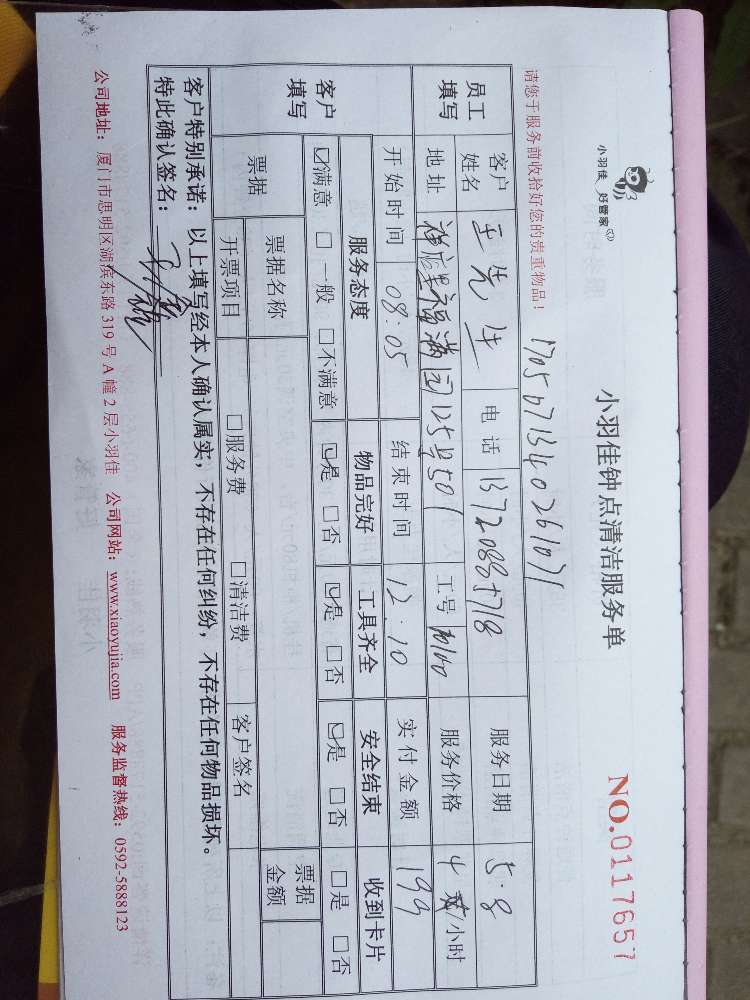 小羽佳 好管家
小羽佳钟点清洁服务单
NO.0117657
请您于服务前收拾好您的贵重物品！
员工填写 客户姓名 王先生 电话 13720885718 服务日期 5.8
地址 福满园125号501 工号 服务价格 4 /小时
开始时间 08:05 结束时间 12.10 实付金额 199
客户填写 服务态度 物品完好 工具齐全 安全结束 收到卡片
☑满意 □一般 □不满意 ☑是 □否 ☑是 □否 ☑是 □否 □是 □否
票据 票据名称 票据金额
开票项目 □服务费 □清洁费 客户签名
客户特别承诺：以上填写经本人确认属实，不存在任何纠纷，不存在任何物品损坏。
特此确认签名：
公司地址：厦门市思明区湖滨东路 319 号 A 幢 2 层小羽佳 公司网站：www.xiaoyujia.com 服务监督热线：0592-5888123